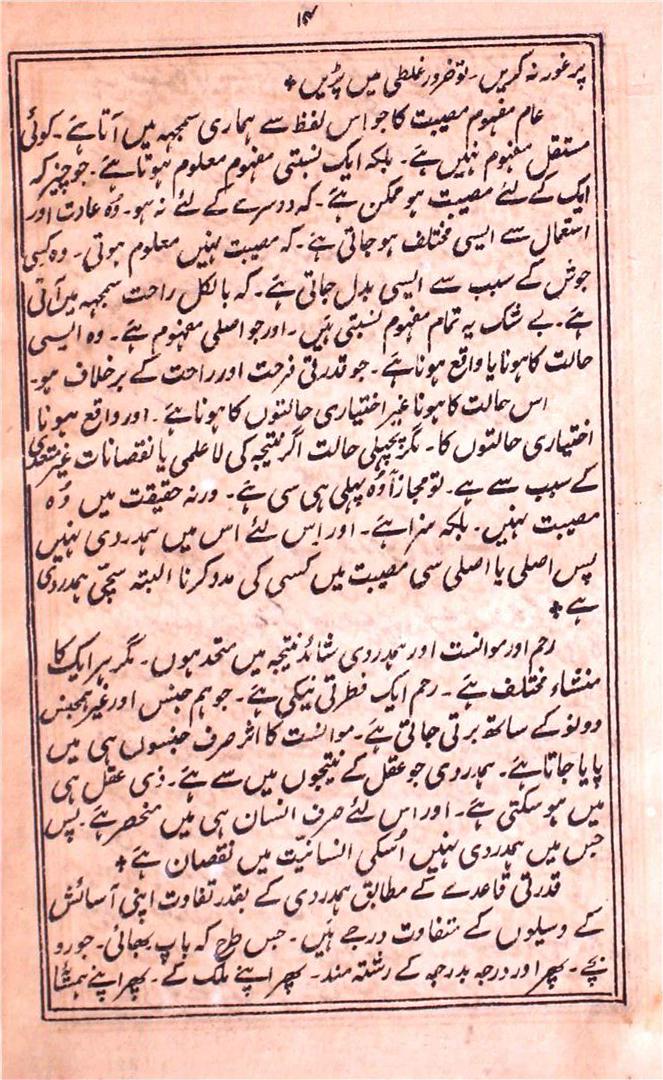 ۱۴
پر غور نہ کریں۔ تو ضرور غلطی میں پڑیں ٭
عام مفہوم مصیبت کا جو اس لفظ سے ہماری سمجہہ میں آتا ہے۔ کوئی
مستقل مفہوم نہیں ہے۔ بلکہ ایک نسبتی مفہوم معلوم ہوتا ہے۔ جو چیز کہ
ایک کے لئے مصیبت ہو ممکن ہے۔ کہ دوسرے کے لئے نہ ہو۔ وُہ عادت اور
استعمال سے ایسی مختلف ہو جاتی ہے۔ کہ مصیبت نہیں معلوم ہوتی۔ وہ کسی
جوش کے سبب سے ایسی بدل جاتی ہے۔ کہ بالکل راحت سمجہہ میں آتی
ہے۔ بے شک یہ تمام مفہوم نسبتی ہیں۔ اور جو اصلی مفہوم ہے۔ وہ ایسی
حالت کا ہونا یا واقع ہونا ہے۔ جو قدرتی فرحت اور راحت کے برخلاف ہو۔
اس حالت کا ہونا غیر اختیاری حالتوں کا ہونا ہے۔ اور واقع ہونا
اختیاری حالتوں کا۔ مگر پچھلی حالت اگر نتیجہ کی لاعلمی یا نقصانات غیر متعدی
کے سبب سے ہے۔ تو مجازاً وُہ پہلی ہی سی ہے۔ ورنہ حقیقت میں وُہ
مصیبت نہیں۔ بلکہ سزا ہے۔ اور اِس لئے اس میں ہمدردی نہیں
پس اصلی یا اصلی سی مصیبت میں کسی کی مدد کرنا البتہ سچّی ہمدردی
ہے ٭
رحم اور موانست اور ہمدردی شائد نتیجہ میں متحد ہوں۔ مگر ہر ایک کا
منشاء مختلف ہے۔ رحم ایک فطرتی نیکی ہے۔ جو ہم جنس اور غیر ہمجنس
دونو کے ساتھ برتی جاتی ہے۔ موانست کا اثر صرف جنسوں ہی میں
پایا جاتا ہے۔ ہمدردی جو عقل کے نتیجوں میں سے ہے۔ ذی عقل ہی
میں ہو سکتی ہے۔ اور اس لئے صرف انسان ہی میں منحصر ہے۔ پس
جس میں ہمدردی نہیں اُسکی انسانیّت میں نقصان ہے ٭
قدرتی قاعدے کے مطابق ہمدردی کے بقدر تفاوت اپنی آسائش
کے وسیلوں کے متفاوت درجے ہیں۔ جس طرح کہ باپ بھائی۔ جورو
بچّے۔ پھر اور درجہ بدرجہ کے رشتہ مند۔ پھر اپنے ملک کے۔ پھر اپنے